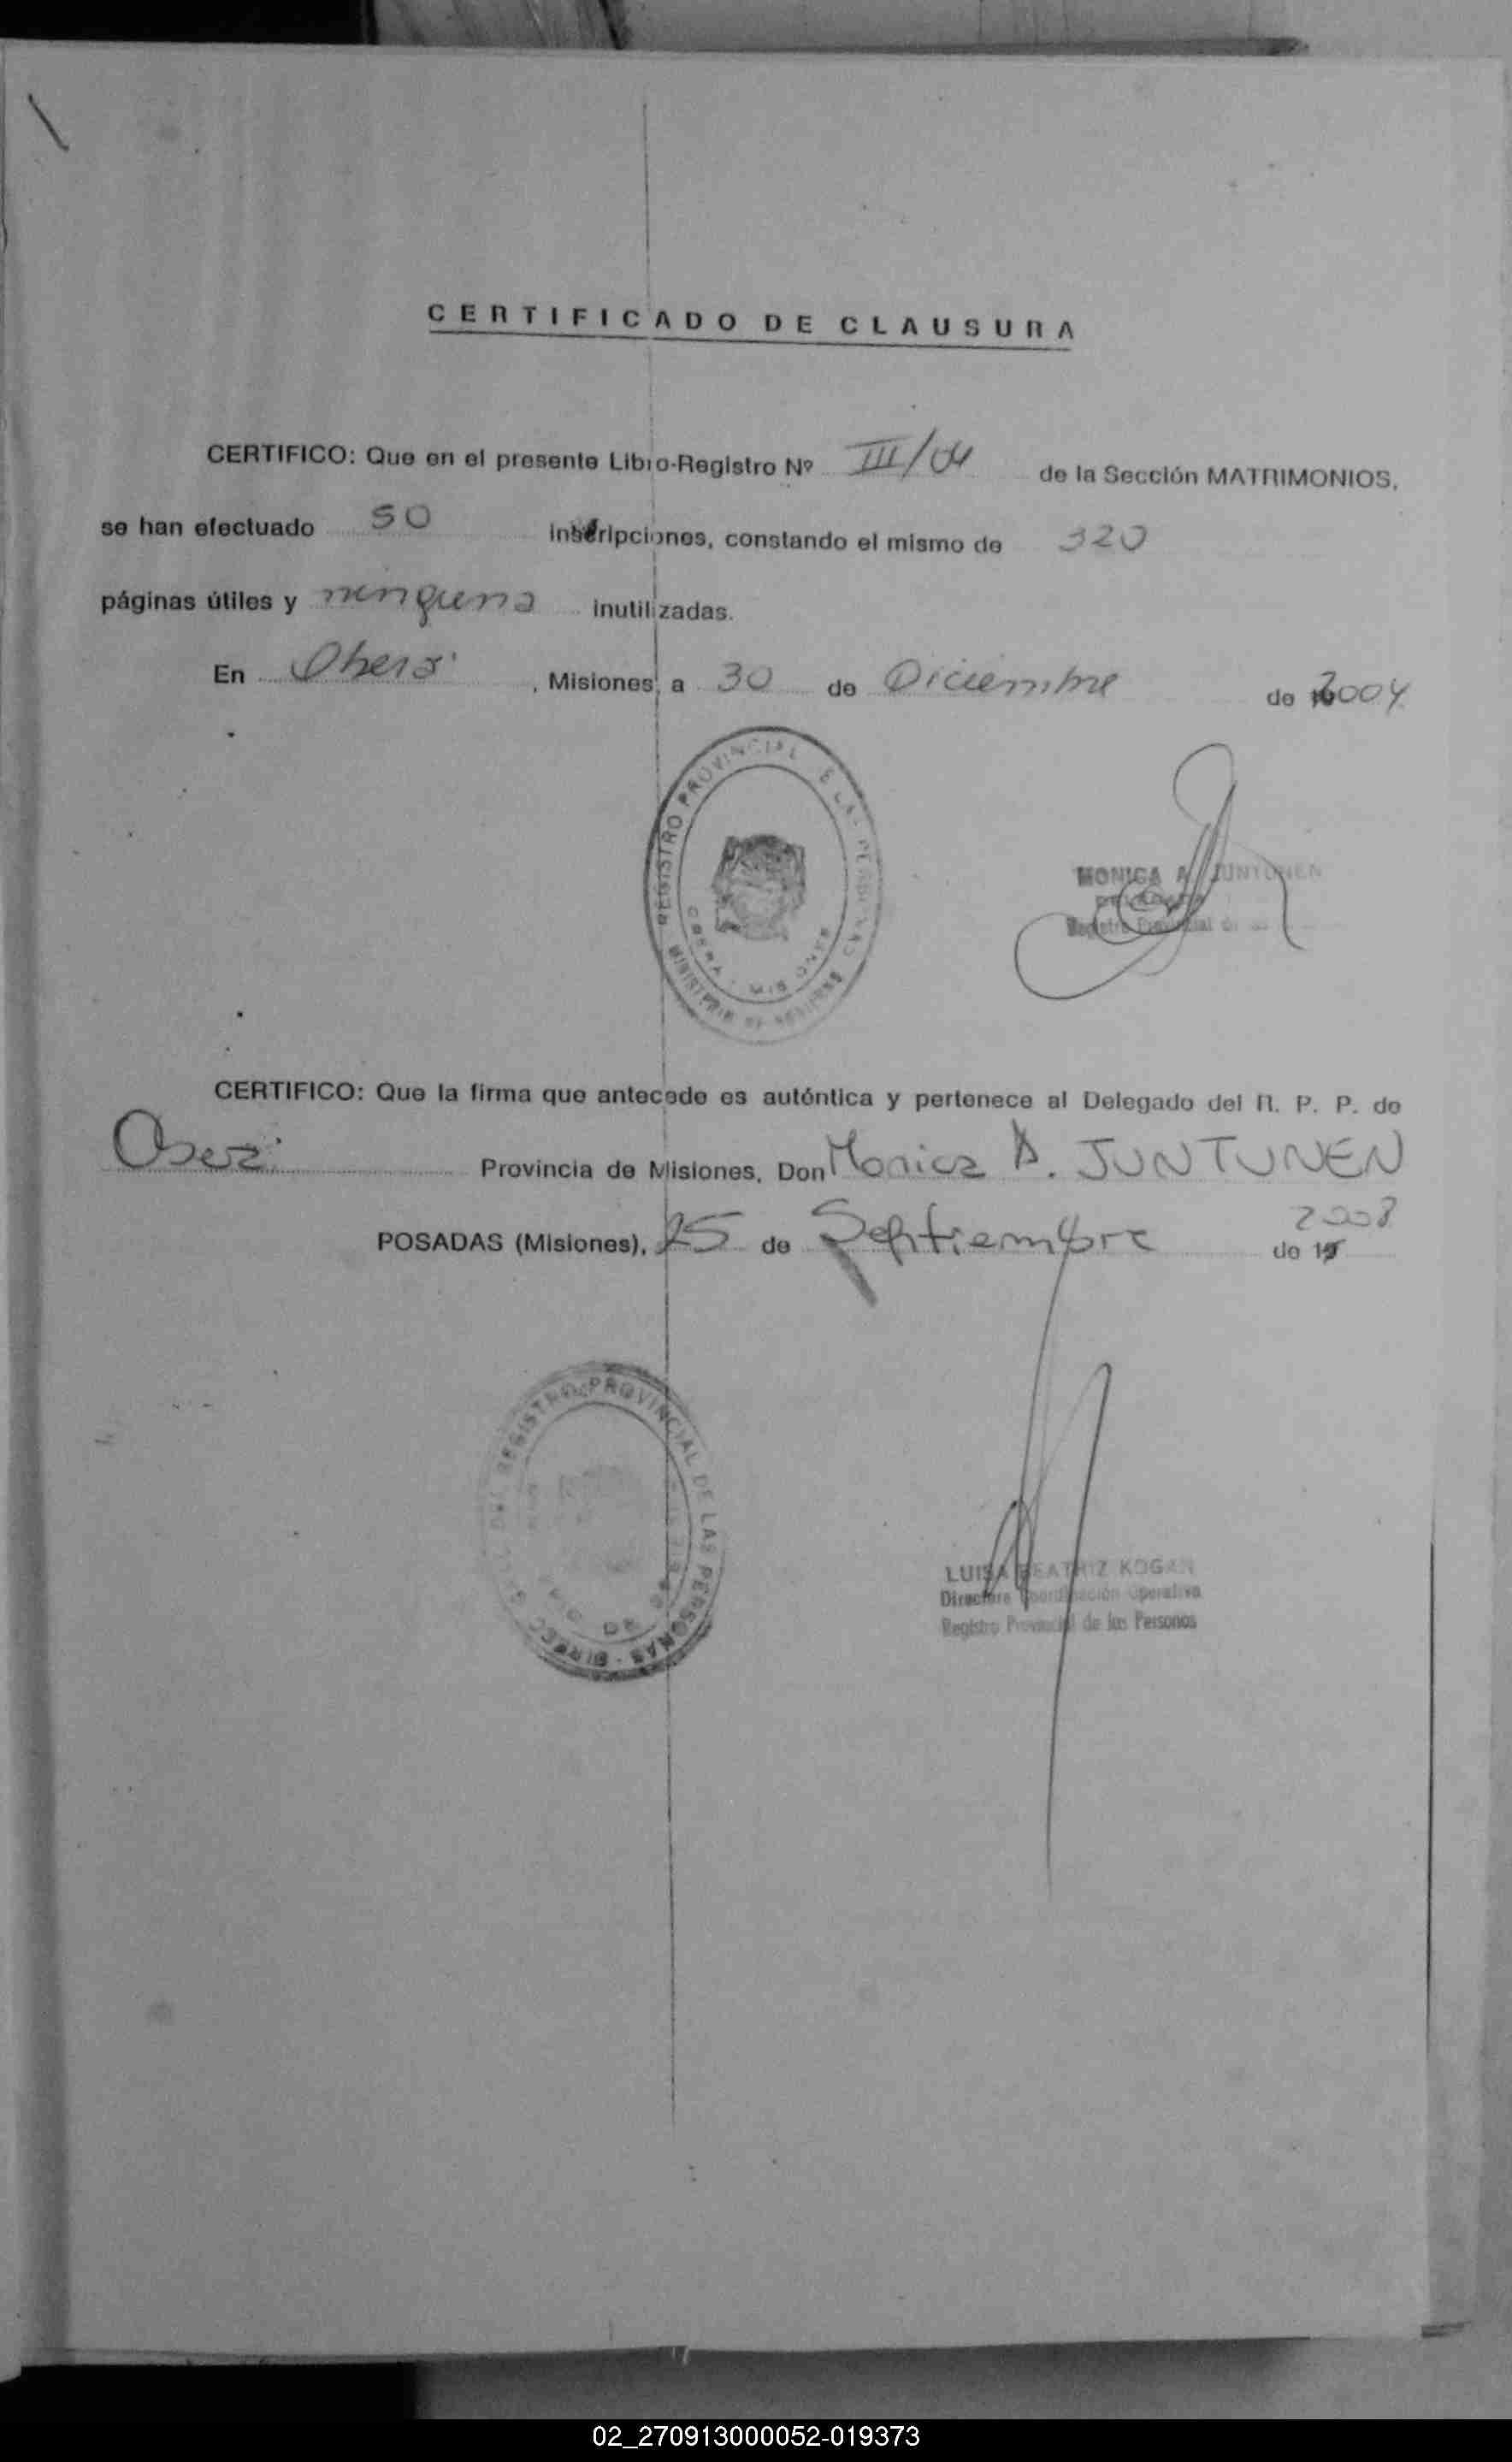 CERTIFICADO DE CLAUSURA
CERTIFICO: Que en el presente Libro-Registro Nº III/04 de la Sección MATRIMONIOS,
se han efectuado 50 inscripciones, constando el mismo de 320
páginas útiles y ninguna inutilizadas.
En Oberá, Misiones, a 30 de Diciembre de 2004
REGISTRO PROVINCIAL DE LAS PERSONAS
MINISTERIO DE
OBERA - MISIONES
MONICA A. JUNTUNEN
Registro Provincial de
CERTIFICO: Que la firma que antecede es auténtica y pertenece al Delegado del R. P. P. de
Oberá Provincia de Misiones, Don Monica A. JUNTUNEN
POSADAS (Misiones), 25 de Septiembre de 2008
REGISTRO PROVINCIAL DE LAS PERSONAS
LUISA BEATRIZ KOGAN
Directora Coordinación Operativa
Registro Provincial de las Personas
02_270913000052-019373